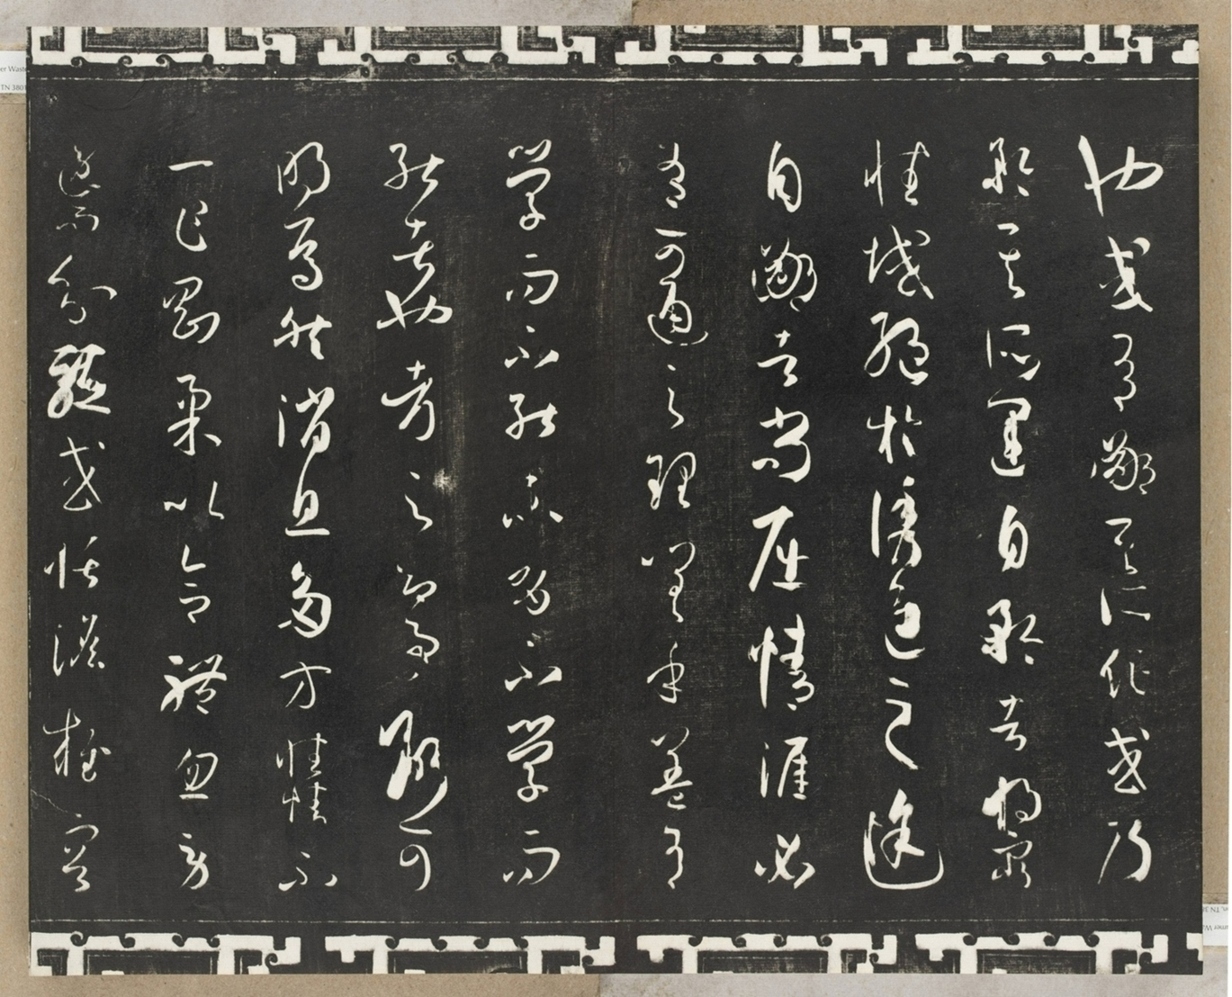 也或有鄙其所作或乃
矜其所運自矜者將窮
性域絕於誘進之途
自鄙者尚屈情涯必
有可通之理嗟乎蓋有
學而不能未有不學而
能者也考之即事斷可
明焉然消息多方性情不
一乍剛柔以合體忽勞
逸而分驅或恬憺雍容